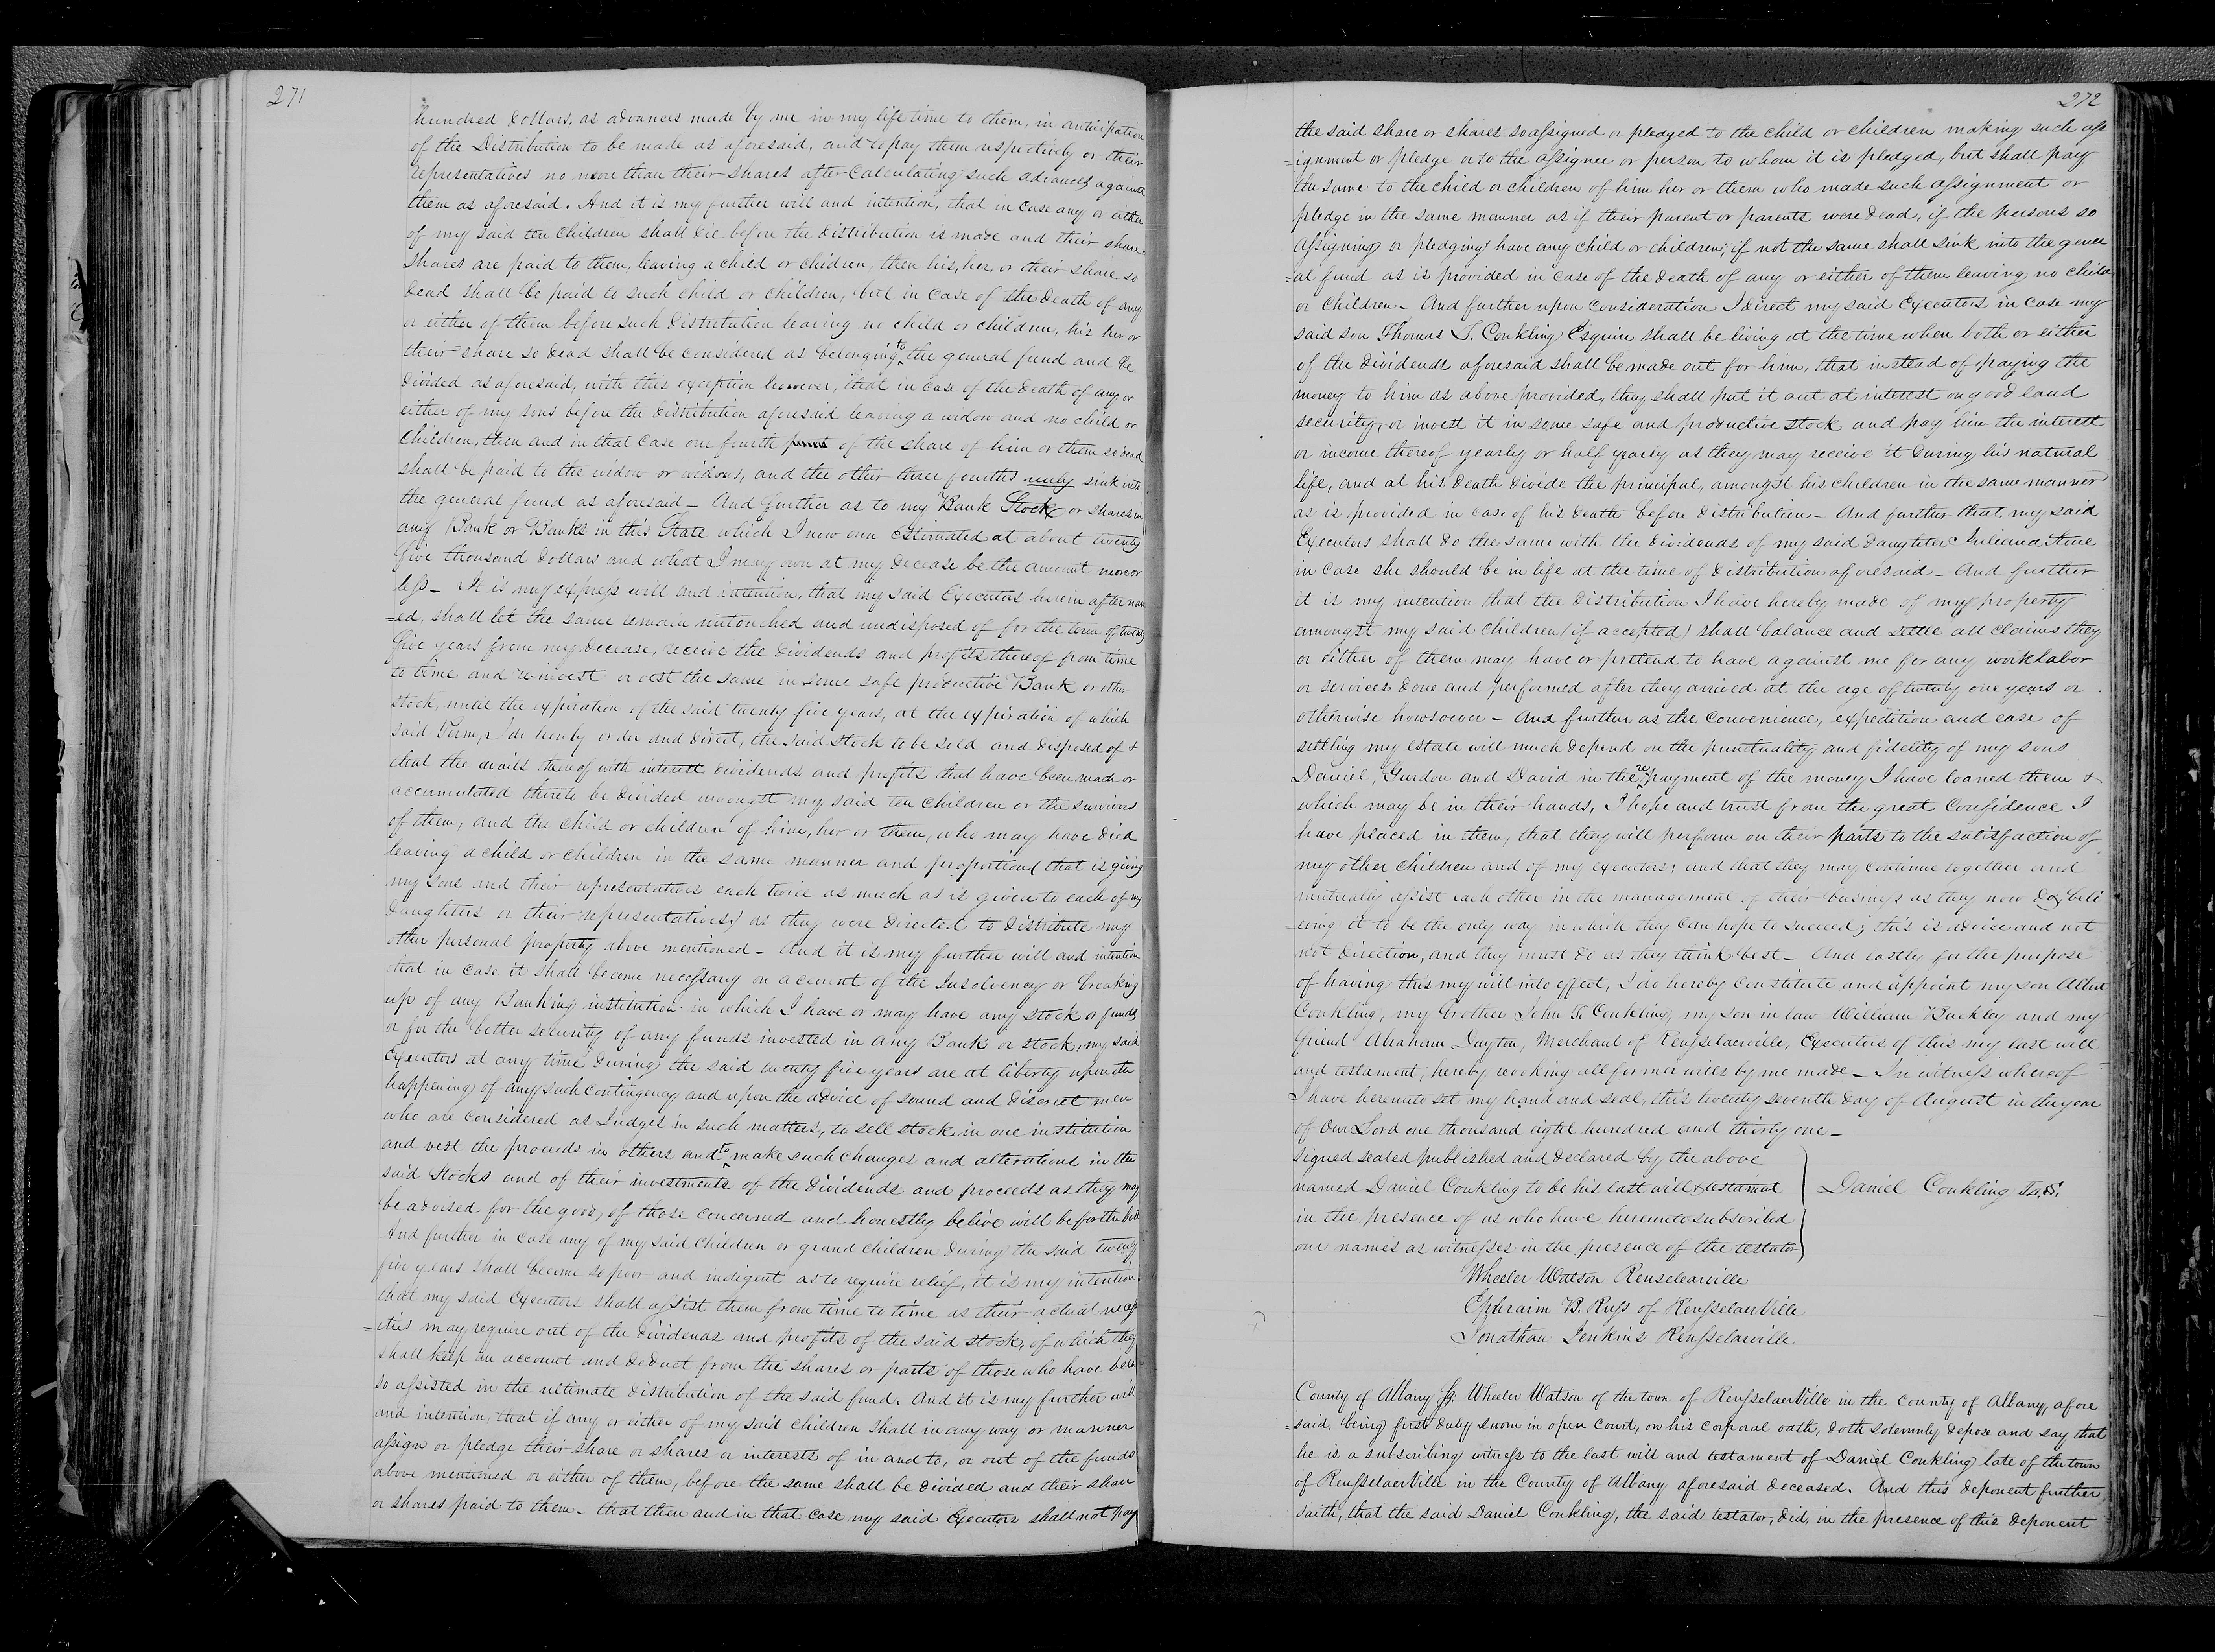 271
hundred Dollars, as advances made by me in my life time to them, in anticipation
of the Distribution to be made as aforesaid, and to pay them respectively or their
representatives no more than their shares after Calculating such advances against
them as aforesaid. And it is my further will and intention, that in Case any or either
of my said ten Children shall Die before the Distribution is made and their share or
shares are paid to them, leaving a child or chidren, then his, her, or their share so
Dead shall be paid to such child or children, but in Case of the Death of any
or either of them before such Distribution leaving no child or children, his her or
their share so Dead shall be considered as belonging to the general fund and be
Divided as aforesaid, with this exception however, that in case of the Death of any or
either of my sons before the Distribution aforesaid leaving a widow and no child or
Children, then and in that Case one fourth of the share of him or them so Dead
shall be paid to the widow or widows, and the other three fourths only sink into
the general fund as aforesaid - And further as to my Bank Stock or shares in
any Bank or Banks in this State which I now own Estimated at about twenty
five thousand Dollars and what I may own at my Decease be the amount more or
less - It is my express will and intention, that my said Executors herein after nam
=ed, shall let the same remain untouched and undisposed of for the term of twenty
five years from my Decease, receive the Dividends and profits thereof from time
to time and re-invest or vest the same in some safe productive Bank or other
stock, until the expiration of the said twenty five years, at the expiration of which
said Term, I do hereby order and Direct, the said stock to be sold and Disposed of &
that the avails thereof with interest Dividends and profits that have been made or
accumulated thereto be Divided amongst my said ten children or the survivors
of them, and the child or children of him, her or them, who may have Died
leaving a child or children in the same manner and proportion (that is giving
my sons and their representatives each twice as much as is given to each of my
Daughters or their representatives) as they were Directed to Distribute my
other personal property above mentioned - And it is my further will and intention
that in case it shall become necessary on account of the Insolvency or breaking
up of any Banking institution in which I have or may have any stock or funds
or for the better security of any funds invested in any Bank or stock, my said
Executors at any time During the said twenty five years are at liberty upon the
happening of any such contingency and upon the advice of sound and Discreet men
who are considered as Judges in such matters, to sell stock in one institution
and vest the proceeds in others and to make such changes and alterations in the
said Stocks and of their investments of the Dividends and proceeds as they may
be advised for the good, of those concerned and honestly belive will be for the best
And further in case any of my said children or grand children During the said twenty
five years shall become so poor and indigent as to require relief, it is my intention
that my said Executors shall assist them from time to time as their actual necess
=ities may require out of the Dividends and profits of the said stock, of which they
shall keep an account and Deduct from the shares or parts of those who have been
so assisted in the ultimate Distribution of the said fund. And it is my further will
and intention, that if any or either of my said children shall in any way or manner
assign or pledge their share or shares or interests of in and to, or out of the funds
above mentioned or either of them, before the same shall be divided and their share
or shares paid to them - that then and in that case my said Executors shall not pay
272
the said share or shares so assigned or pledged to the child or children making such ass
=ignment or pledge or to the assignee or person to whom it is pledged, but shall pay
the same to the child or children of him her or them who made such assignment or
pledge in the same manner as if their parent or parents were Dead, if the persons so
assigning or pledging have any child or children; if not the same shall sink into the gener
=al fund as is provided in case of the Death of any or either of them leaving no child
or Children - And further upon consideration I Direct my said Executors in case my
said son Thomas S. Conkling Esquire shall be living at the time when both or either
of the Dividends aforesaid shall be made out for him, that instead of paying the
money to him as above provided, they shall put it out at interest on good land
security, or invest it in some safe and productive stock and pay him the interest
or income thereof yearly or half yearly as they may receive it During his natural
life, and at his Death Divide the principal, amongst his children in the same manner
as is provided in case of his Death before Distribution - And further that, my said
Executors shall Do the same with the Dividends of my said Daughter
in case she should be in life at the time of Distribution aforesaid - And further
it is my intention that the Distribution I have hereby made of my property
amongst my said children (if accepted) shall balance and settle all claims they
or either of them may have or pretend to have against me for any work labor
or services Done and performed after they arrived at the age of twenty one years or
otherwise howsoever - And further as the convenience, expedition and ease of
settling my estate will much Depend on the punctuality and fidelity of my sons
Daniel, Gurdon and David in the re payment of the money I have loaned them &
which may be in their hands, I hope and trust from the great Confidence I
have placed in them, that they will perform on their parts to the satisfaction of
my other children and of my executors; and that they may continue together and
mutually assist each other in the management of their business as they now Do, beli
=eving it to be the only way in which they can hope to succeed; this is advice and not
not Direction, and they must Do as they think best - And lastly for the purpose
of having this my will into effect, I do hereby constitute and appoint my son Albert
Conkling, my brother John T. Conkling, my son in law William Buckley and my
friend Abraham Dayton, Merchant of Rensselaerville, Executors of this my last will
and testament, hereby revoking all former wills by me made - In witness whereof
I have hereunto set my hand and seal, this twenty seventh Day of August in the year
of Our Lord one thousand eight hundred and thirty one -
signed sealed published and Declared by the above
named Daniel Conkling to be his last will & testament
in the presence of us who have hereunto subscribed
our names as witnesses in the presence of the testator
Daniel Conkling L.S.
Wheeler Watson Renselearville
Ephraim B. Russ of Rensselaerville
Jonathan Jenkins Rensselarville
County of Albany Ss. Wheeler Watson of the town of Rensselaerville in the County of Albany, afore
=said, being first Duly sworn in open Court, on his corporal oath, Doth solemnly Depose and say that
he is a subscribing witness to the last will and testament of Daniel Conkling late of the town
of Rensselaerville in the County of Albany aforesaid deceased. And this Deponent further
saith, that the said Daniel Conkling, the said testator, Did, in the presence of this Deponent